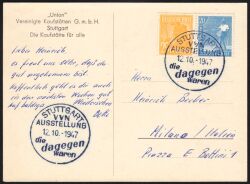 „Union"
Vereinigte Kaufstätten G.m.b.H.
Stuttgart
Die Kaufstätte für alle
Lieber Heinrich,
es freut uns sehr, dass du
gut angekommen bist.
Hoffentlich geht es dir auch
in den nächsten Wochen gut
Auf baldiges Wiedersehen
20
STUTTGART
VVN
AUSSTELLUNG
12.10.-1947
die
dagegen
waren
STUTTGART
VVN
AUSSTELLUNG
12.10.-1947
die
dagegen
waren
Herrn
Heinrich Becker
Milano / Italien
Piazza E. Bottini 1